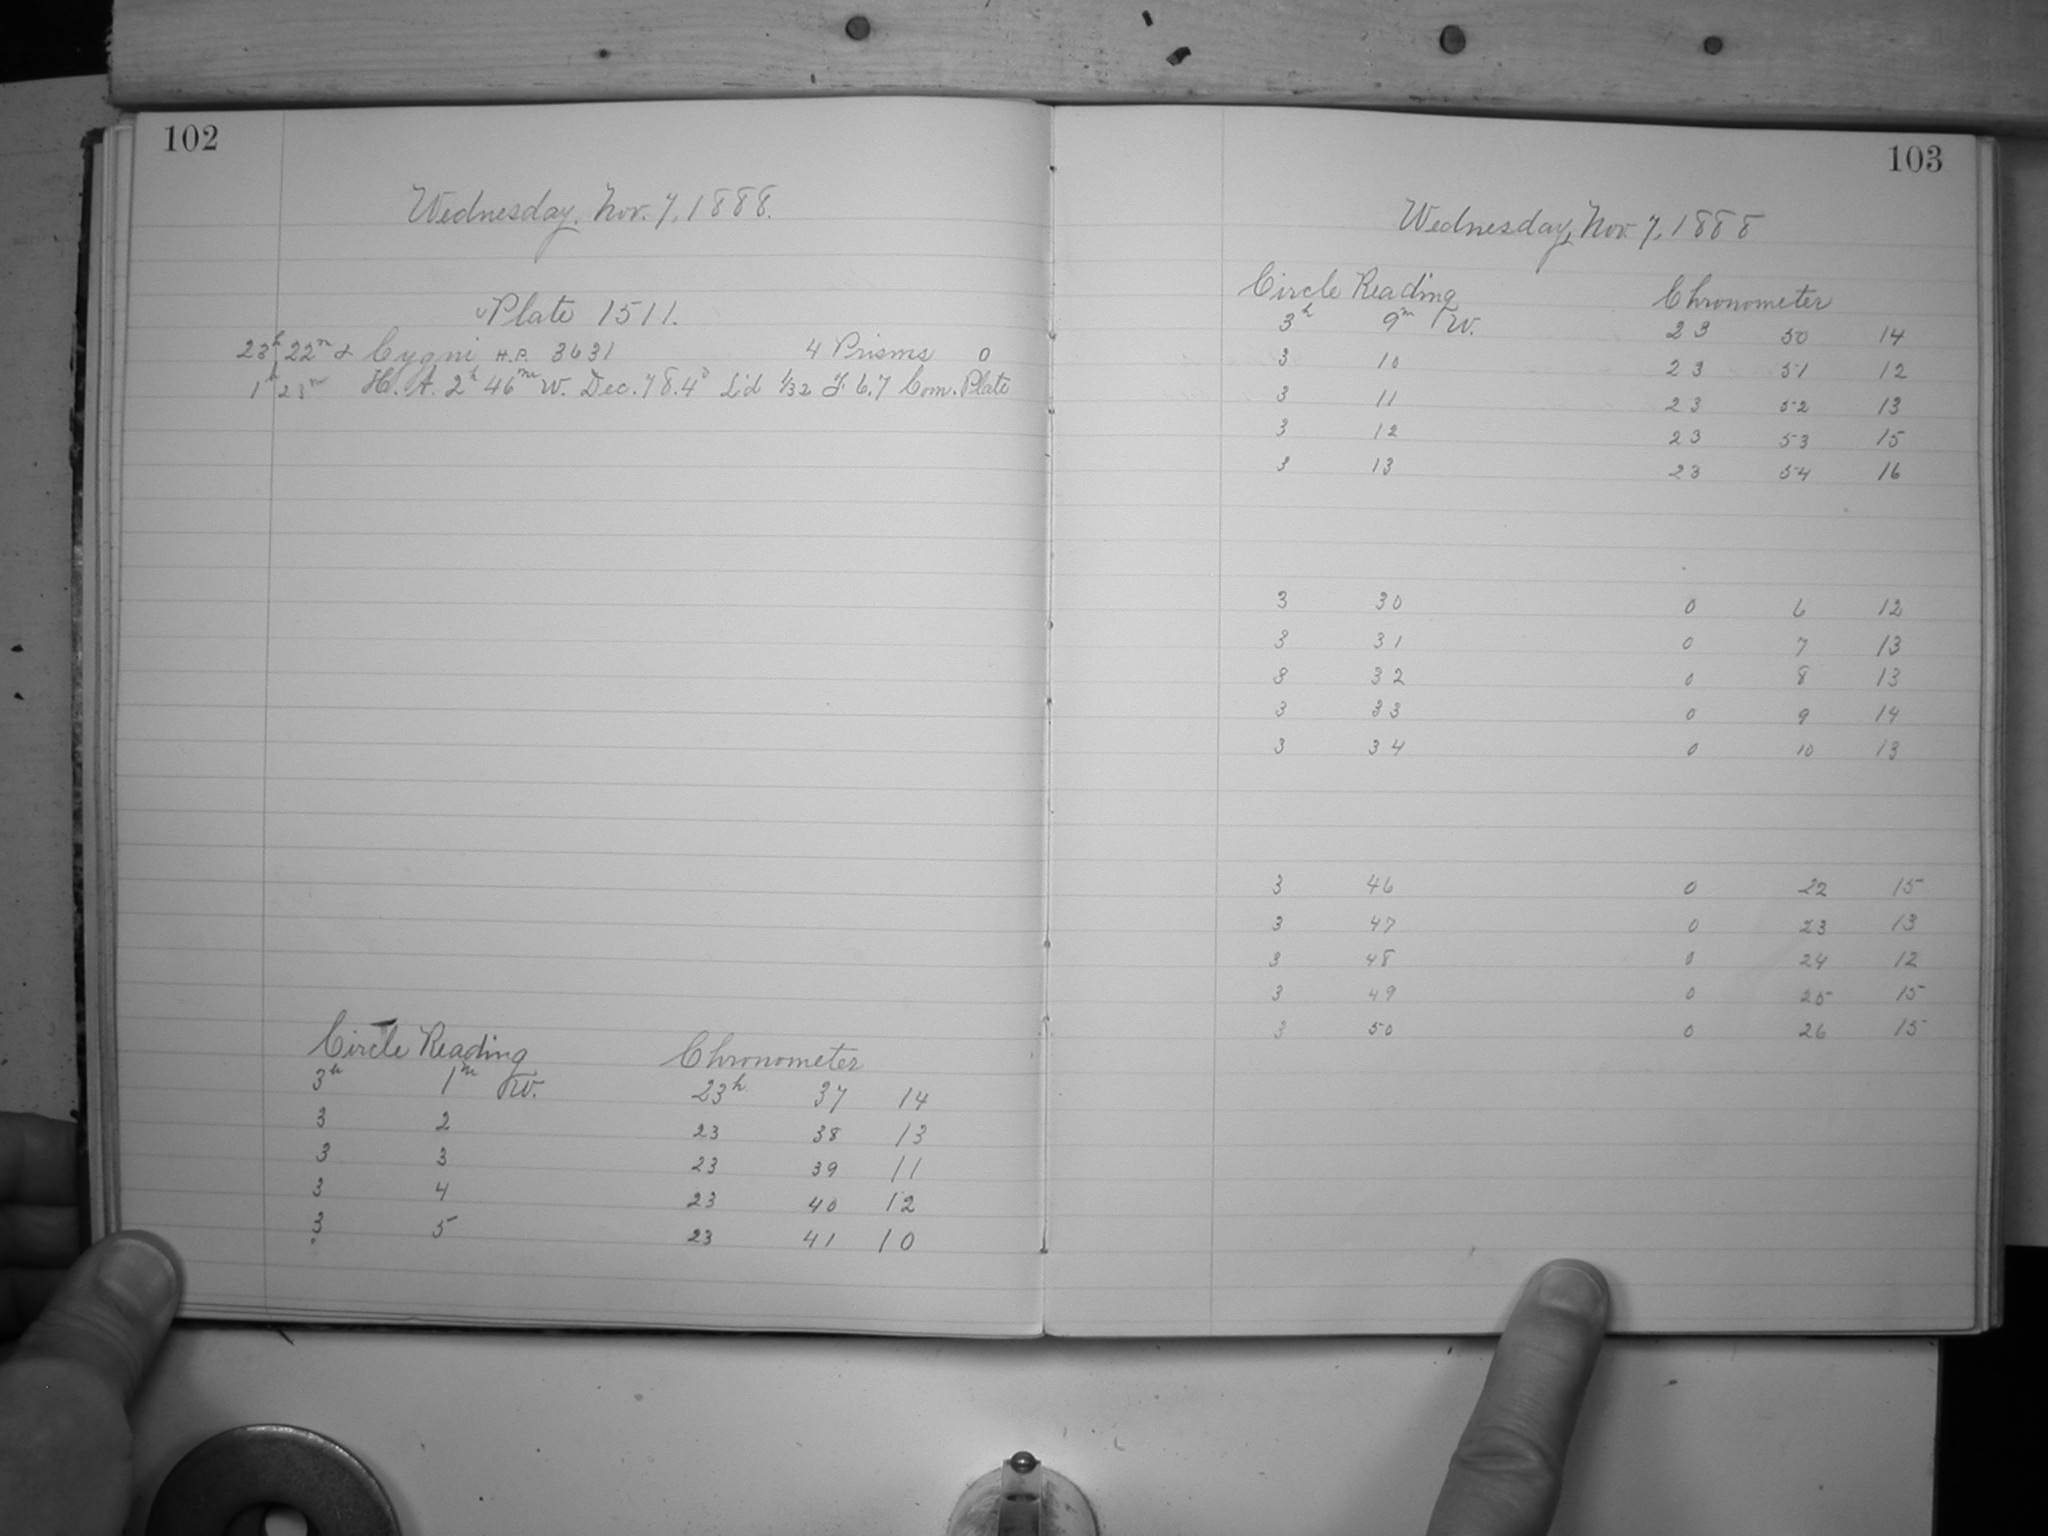 102
Wednesday, Nov. 7, 1888.
Plate 1511.
23h 22m α Cygni H.P. 3631 4 Prisms 0
1h 23m H. A. 2h 46m W. Dec. 78.4° L'd 1/32 F 6.7 Com. Plate
Circle Reading Chronometer
3h 1m W. 23h 37 14
3 2 23 38 13
3 3 23 39 11
3 4 23 40 12
3 5 23 41 10
103
Wednesday, Nov. 7, 1888
Circle Reading Chronometer
3h 9m W. 23 50 14
3 10 23 51 12
3 11 23 52 13
3 12 23 53 15
3 13 23 54 16
3 30 0 6 12
3 31 0 7 13
3 32 0 8 13
3 33 0 9 14
3 34 0 10 13
3 46 0 22 15
3 47 0 23 13
3 48 0 24 12
3 49 0 25 15
3 50 0 26 15